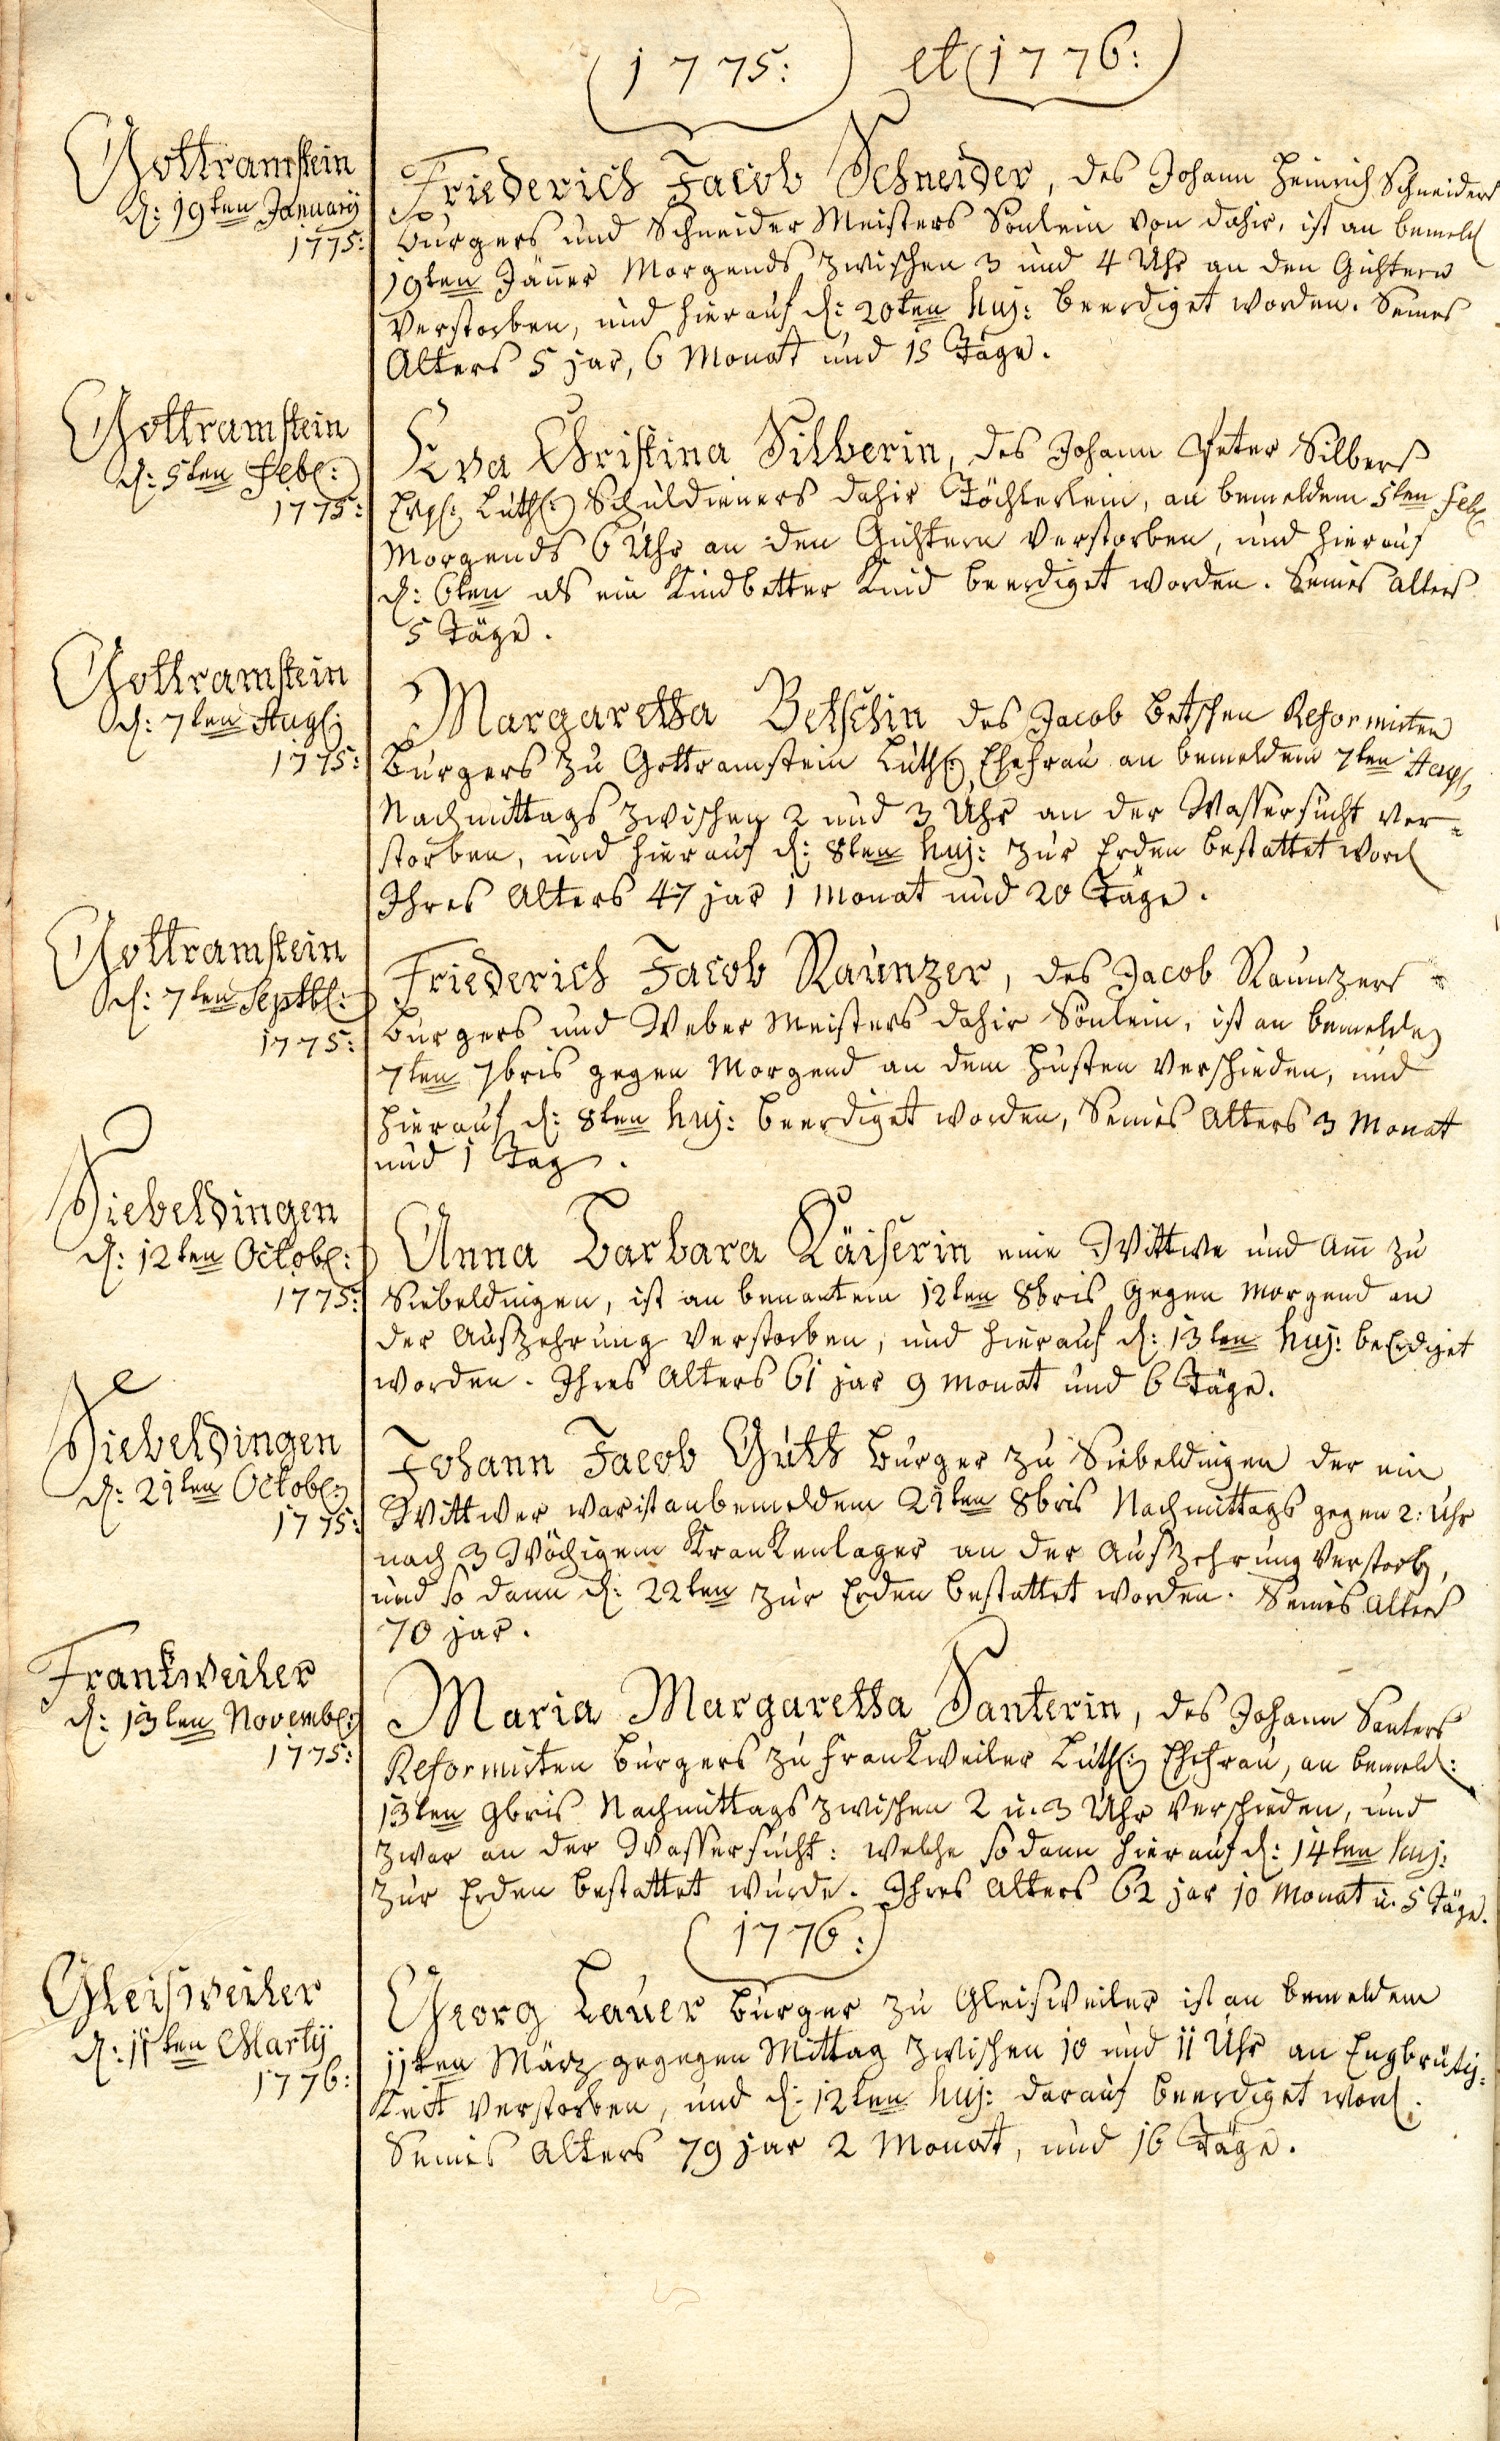 (1775:) et (1776:)
Gottramstein
d: 19ten January
1775:
Friederich Jacob Schneider, des Johann Heinrich Schneiders
burgers und Schneider Meisters Sönlein von dahir, ist an bemeld
19ten Jäner Morgends zwischen 3 und 4 Uhr an den Gichtern
verstorben, und hierauf d: 20ten huj: beerdiget worden. Seines
Alters 5 jar, 6 Monat und 15 Täge.
Gottramstein
d: 5ten Feb:
1775:
Eva Christina Silberin, des Johann Peter Silbers
Evgl: Luth: Schuldieners dahir Töchterlein, an bemeldem 5ten Feb
Morgends 6 Uhr an den Gichtern verstorben, und hierauf
d: 6ten als ein Kindbetter Kind beerdiget worden. Seines alters
5 Täge.
Gottramstein
d: 7ten Aug:
1775:
Margaretha Betschin des Jacob Betschen Reformirten
Burgers zu Gottramstein Luth: Ehefrau an bemeldem 7ten Aug
Nachmittags zwischen 2 und 3 Uhr an der Wassersucht ver=
storben, und hierauf d: 8ten huj: zur Erden bestattet word
Ihres Alters 47 jar 1 Monat und 20 Täge.
Gottramstein
d: 7ten Septb:
1775:
Friederich Jacob Raunzer, des Jacob Raunzers
burgers und Weber Meisters dahir Sönlein, ist an bemelden
7ten 7bris gegen Morgend an dem Husten verschieden, und
hierauf d: 8ten huj: beerdiget worden, Seines Alters 3 Monat
und 1 Tag.
Siebeldingen
d: 12ten Octob:
1775:
Anna Barbara Käiserin eine Wittwe und Am zu
Siebeldingen, ist an benantem 12ten 8bris gegen morgend an
der Auszehrung verstorben, und hierauf d: 13ten huj: beerdiget
worden. Ihres Alters 61 jar 9 monat und 6 Täge.
Siebeldingen
d: 21ten Octob:
1775:
Johann Jacob Guth Burger zu Siebeldingen der ein
Wittwer war ist an bemeldem 21ten 8bris Nachmittags gegen 2: Uhr
nach 3 Wöchigem Krankenlager an der Auszehrung verstorb,
und so dann d: 22ten zur Erden bestattet worden. Seines Alters
70 jar.
Frankweiler
d: 13ten Novemb:
1775:
Maria Margaretha Santerin, des Johann Santers
Reformirten Burgers zu Frankweiler Luth: Ehefrau, an bemeld:
13ten 9bris Nachmittags zwischen 2 u. 3 Uhr verschieden, und
zwar an der Wassersucht: welche so dann hierauf d: 14ten huj:
zur Erden bestattet wurde. Ihres Alters 62 jar 10 Monat u. 5 Täge.
(1776:)
Gleisweiler
d: 11ten Martij
1776:
Georg Lauer Burger zu Gleisweiler ist an bemeldem
11ten März gegegen Mittag zwischen 10 und 11 Uhr an Engbrüstig:
keit verstorben, und d: 12ten huj: darauf beerdiget word.
Seines Alters 79 jar 2 Monat, und 16 Täge.